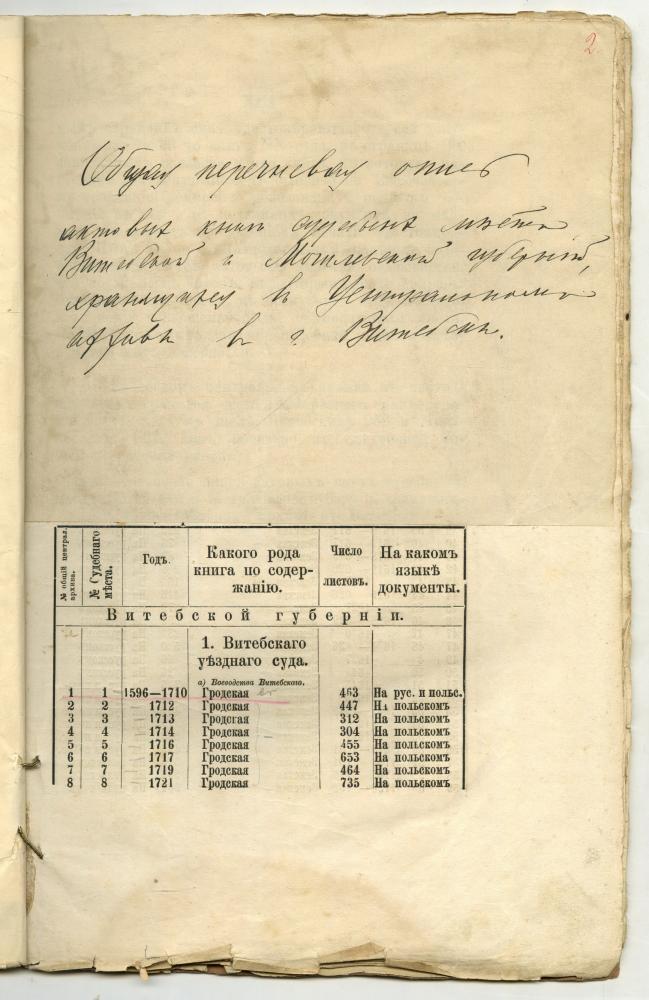 2
Общая перечневая опись
актовых книг судебных мест
Витебской и Могилевской губерний,
хранящихся в Центральном
архиве в г. Витебске.
№ общій централ. архива.
№ Судебнаго мѣста.
Годъ.
Какого рода книга по содержанію.
Число листовъ.
На какомъ языкѣ документы.
Витебской губерніи.
1. Витебскаго
уѣзднаго суда.
а) Воеводства Витебскаго.
1 1 1596—1710 Гродская 463 На рус. и польс.
2 2 1712 Гродская 447 На польскомъ
3 3 1713 Гродская 312 На польскомъ
4 4 1714 Гродская 304 На польскомъ
5 5 1716 Гродская 455 На польскомъ
6 6 1717 Гродская 653 На польскомъ
7 7 1719 Гродская 464 На польскомъ
8 8 1721 Гродская 735 На польскомъ